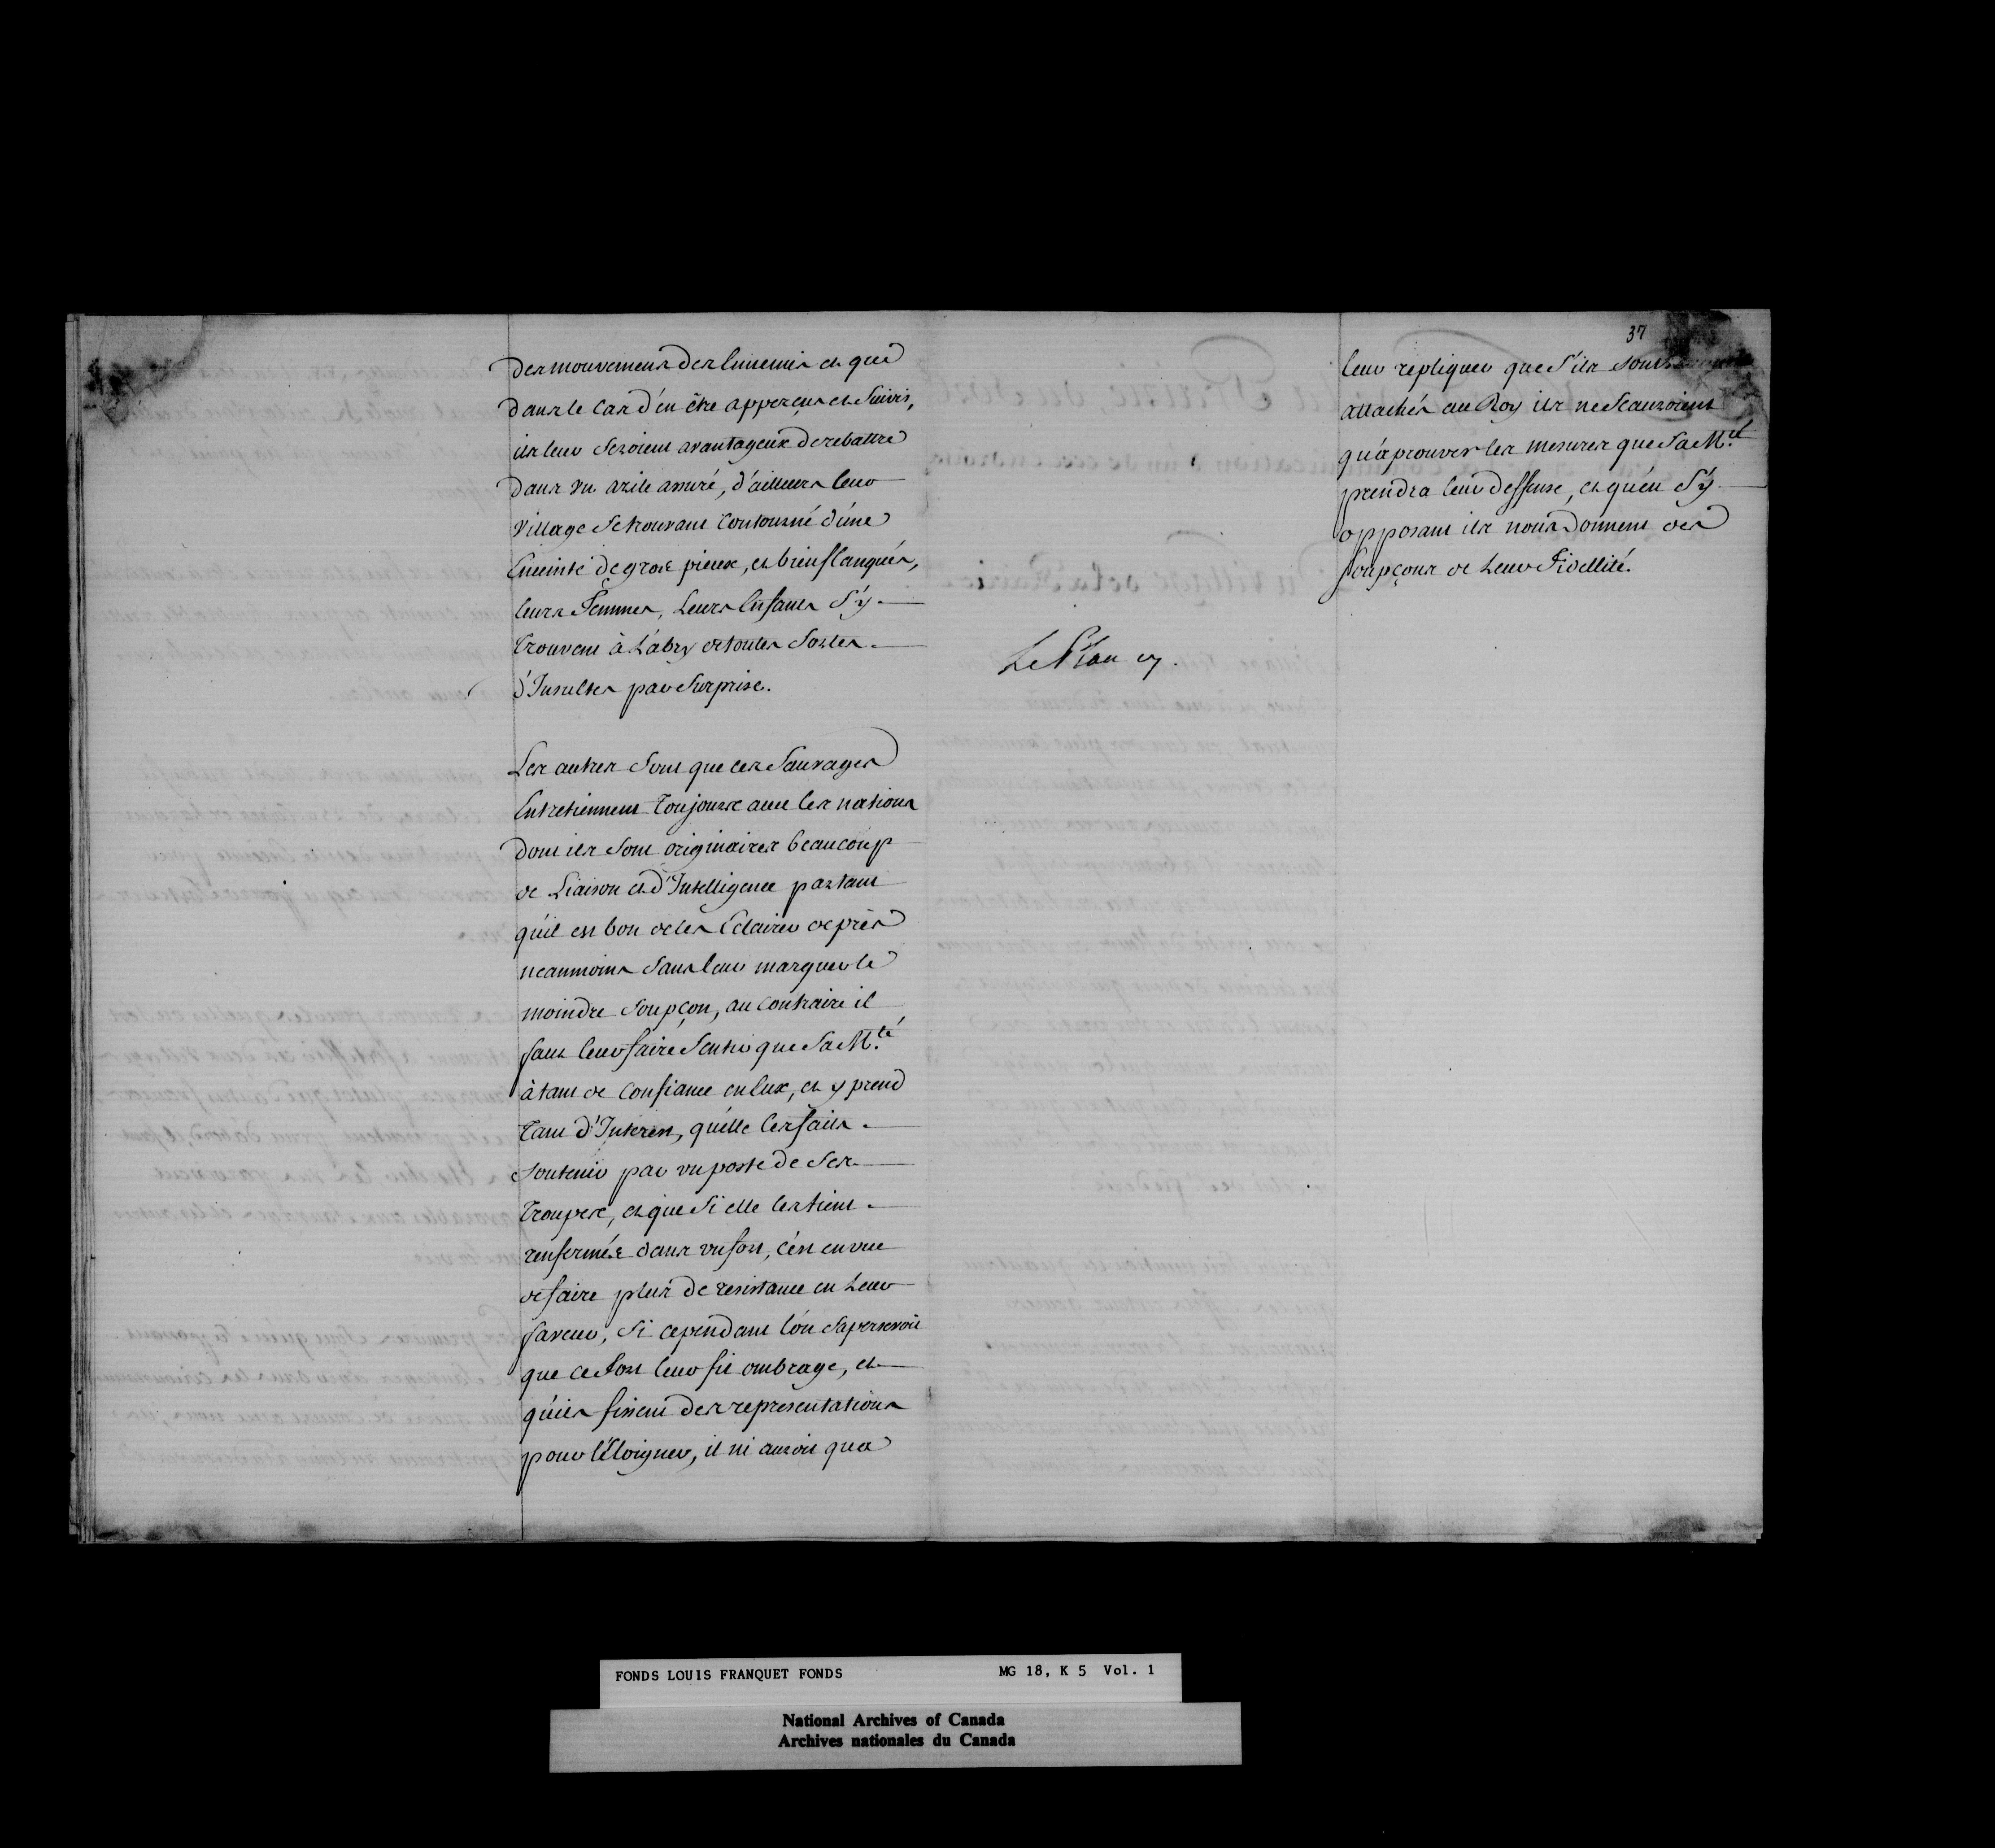 des mouvemens des Ennemis et que
dans le cas d'en être apperçus et Suivis,
ils leur Seroient avantageux de rebattre
dans un azile assuré, d'ailleurs leur
Village Se trouvant Contourné d'une
Enceinte de gros pieux, et bien flanqués,
leurs Femmes, Leurs Enfans S'y
trouvent à L'abry de toutes Sortes
d'Insultes par Surprise.

Les autres Sont que ces Sauvages
Entretiennent toujours avec les nations
dont ils Sont originaires beaucoup
de Liaison et d'Intelligence partant
qu'il est bon de les Eclairer de près
neanmoins Sans leur marquer le
moindre Soupçon, au Contraire il
faut leur faire Sentir que Sa M.té
à tant de Confiance en Eux, et y prend
tant d'Interest, qu'elle les fait
Soutenir par un poste de Ses
troupes, et que Si elle les tient
renfermés dans un fort, c'est en vue
de faire plus de resistance en Leur
faveur, Si cependant l'on Saperçevoit
que ce Fort leur fit ombrage, et
qu'ils fissent des representations
pour l'Eloigner, il ni auroit qu'a
37
leur repliquer que S'ils Sont
attachés au Roy ils ne Scauroient
qu'aprouver les mesures que Sa M.té
prendra leur deffense, et qu'en S'y
opposant ils nous donnent des
Soupçons de Leur Fidellité.
Le Plan cy.
FONDS LOUIS FRANQUET FONDS MG 18, K 5 Vol. 1
National Archives of Canada
Archives nationales du Canada